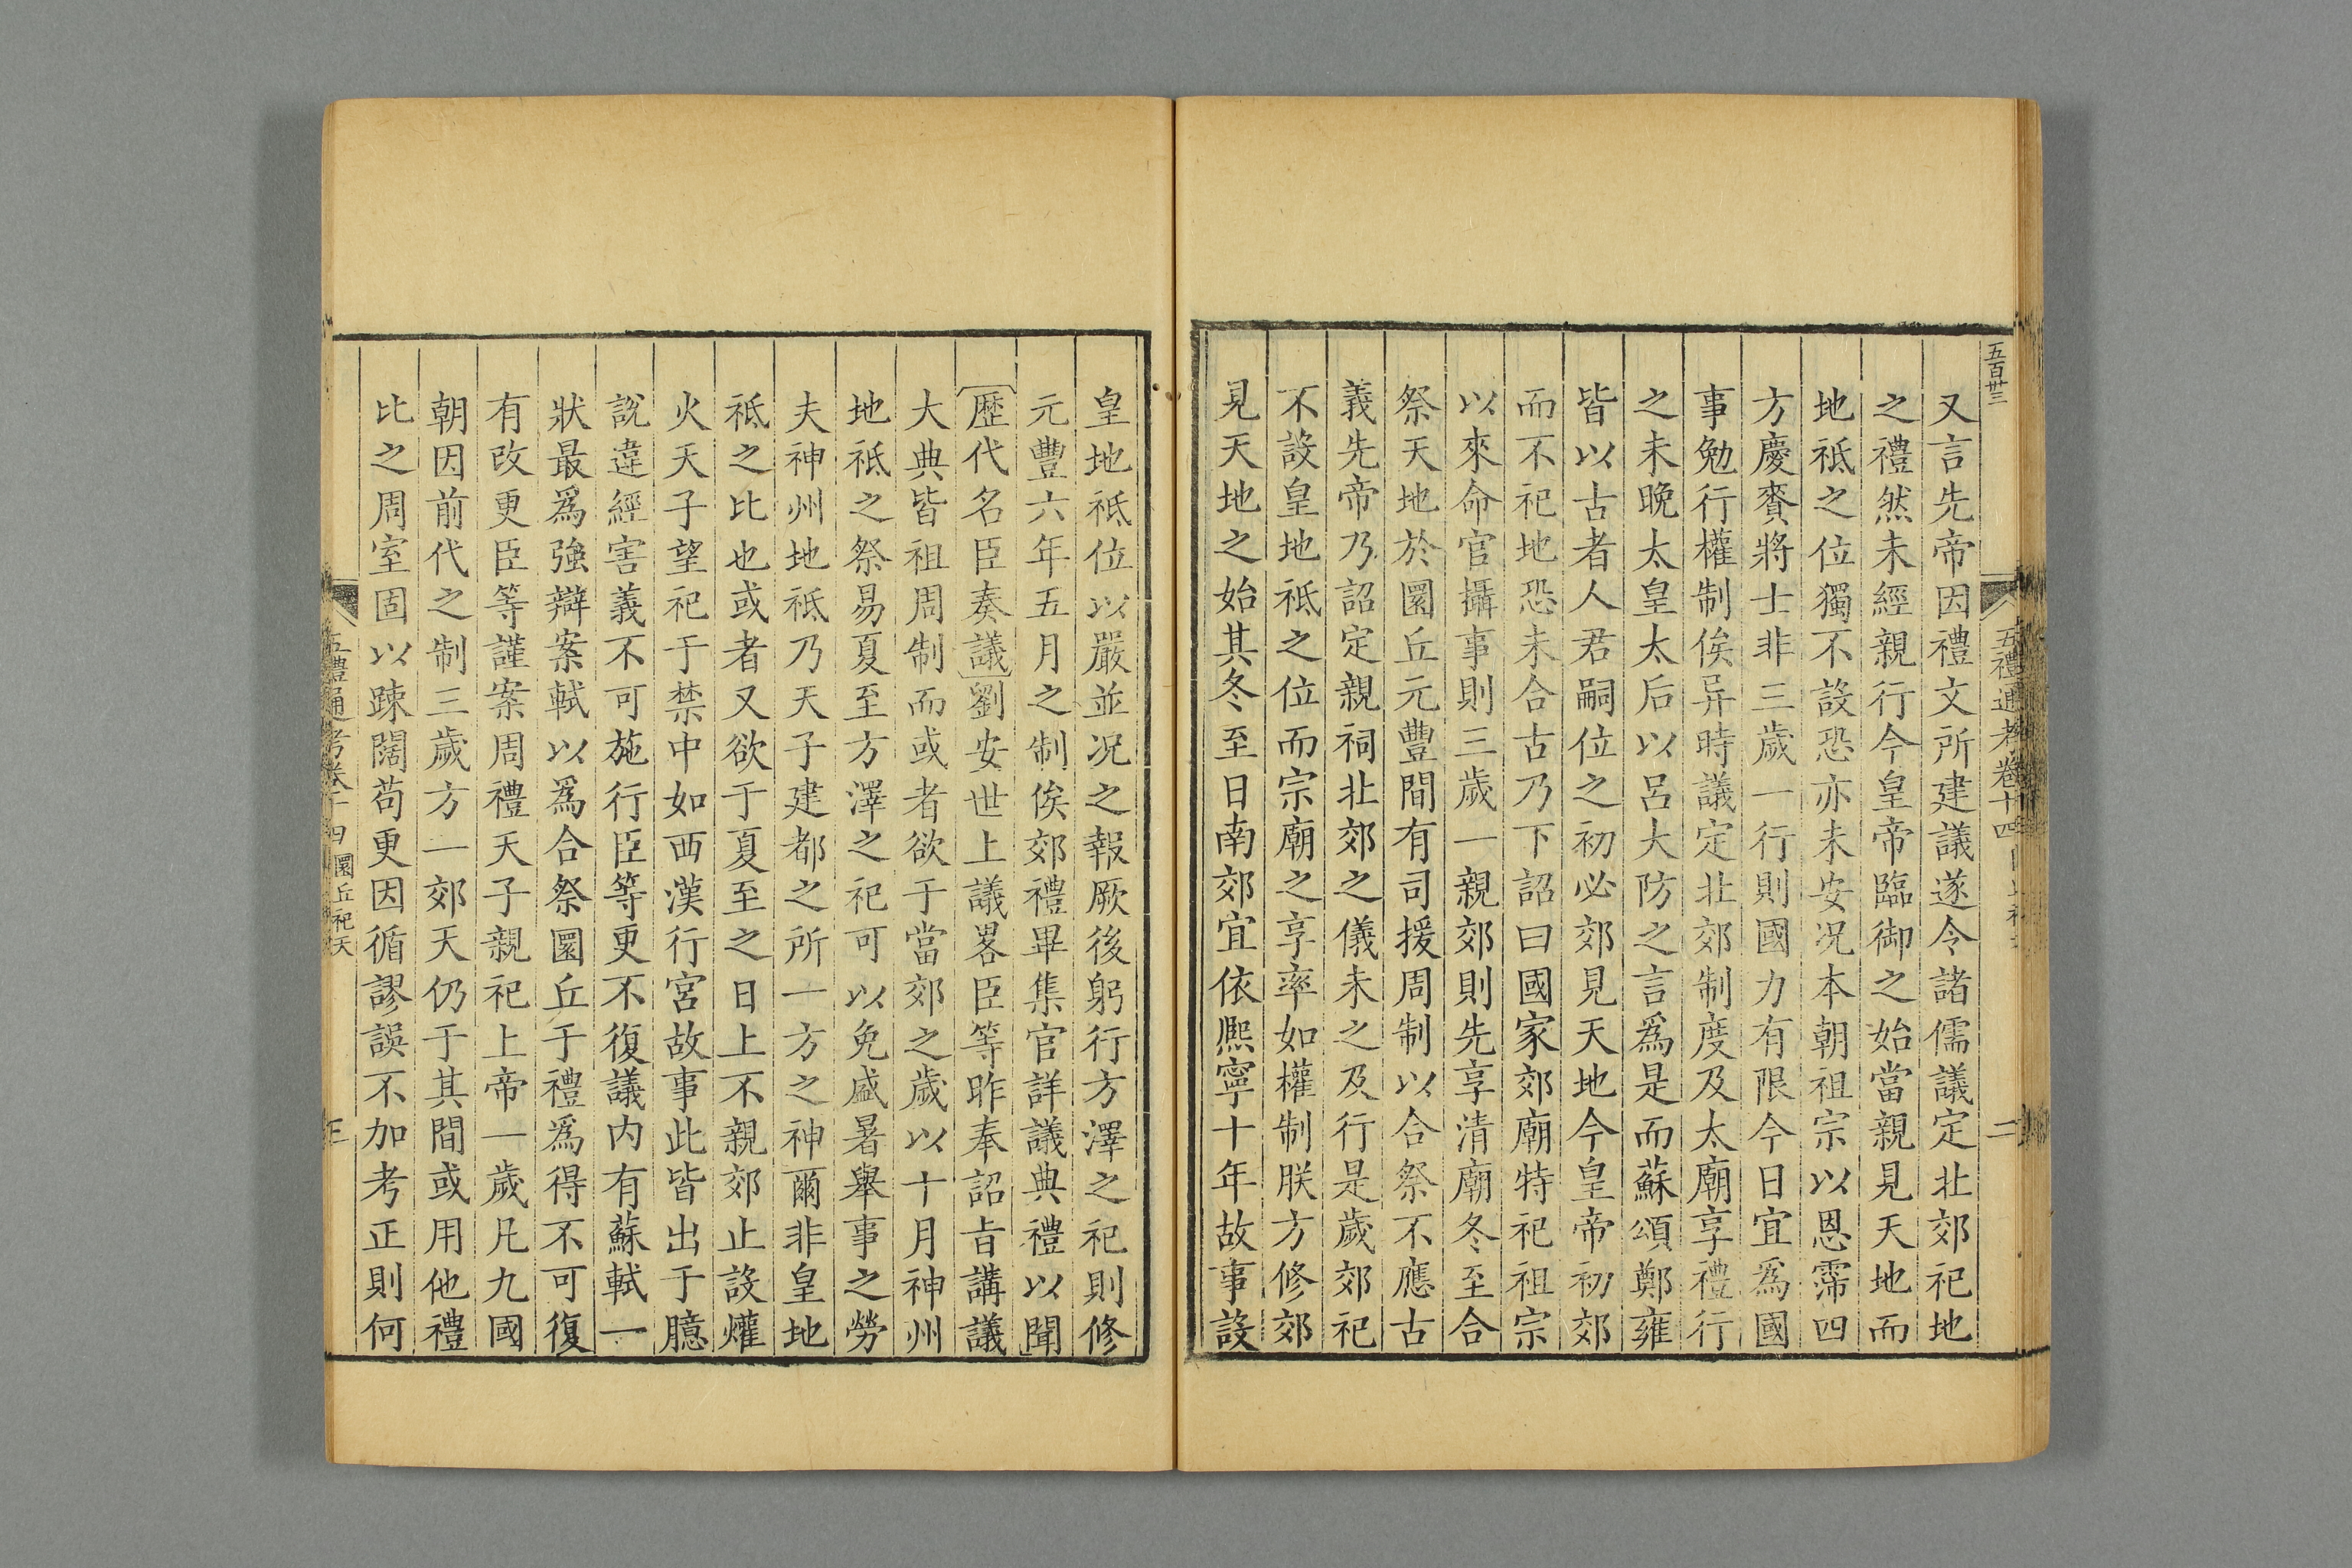 五百卅三
五禮通考卷十四
二
又言先帝因禮文所建議遂令諸儒議定北郊祀地
之禮然未經親行今皇帝臨御之始當親見天地而
地祗之位獨不設恐亦未安况本朝祖宗以恩霈四
方慶賚將士非三歲一行則國力有限今日宜爲國
事勉行權制俟异時議定北郊制度及太廟享禮行
之未晚太皇太后以呂大防之言爲是而蘇頌鄭雍
皆以古者人君嗣位之初必郊見天地今皇帝初郊
而不祀地恐未合古乃下詔曰國家郊廟特祀祖宗
以來命官攝事則三歲一親郊則先享清廟冬至合
祭天地於圜丘元豐間有司援周制以合祭不應古
義先帝乃詔定親祠北郊之儀未之及行是歲郊祀
不設皇地祗之位而宗廟之享率如權制朕方修郊
見天地之始其冬至日南郊宜依熈寧十年故事設
皇地祗位以嚴並况之報厥後躬行方澤之祀則修
元豐六年五月之制俟郊禮畢集官詳議典禮以聞
歷代名臣奏議劉安世上議畧臣等昨奉詔旨講議
大典皆祖周制而或者欲于當郊之歲以十月神州
地祗之祭易夏至方澤之祀可以免盛暑舉事之勞
夫神州地祗乃天子建都之所一方之神爾非皇地
祗之比也或者又欲于夏至之日上不親郊止設爟
火天子望祀于禁中如西漢行宮故事此皆出于臆
說違經害義不可施行臣等更不復議内有蘇軾一
狀最爲強辯案軾以爲合祭圜丘于禮爲得不可復
有改更臣等謹案周禮天子親祀上帝一歲凡九國
朝因前代之制三歲方一郊天仍于其間或用他禮
比之周室固以踈闊苟更因循謬誤不加考正則何
五禮通考卷十四 圜丘祀天
三